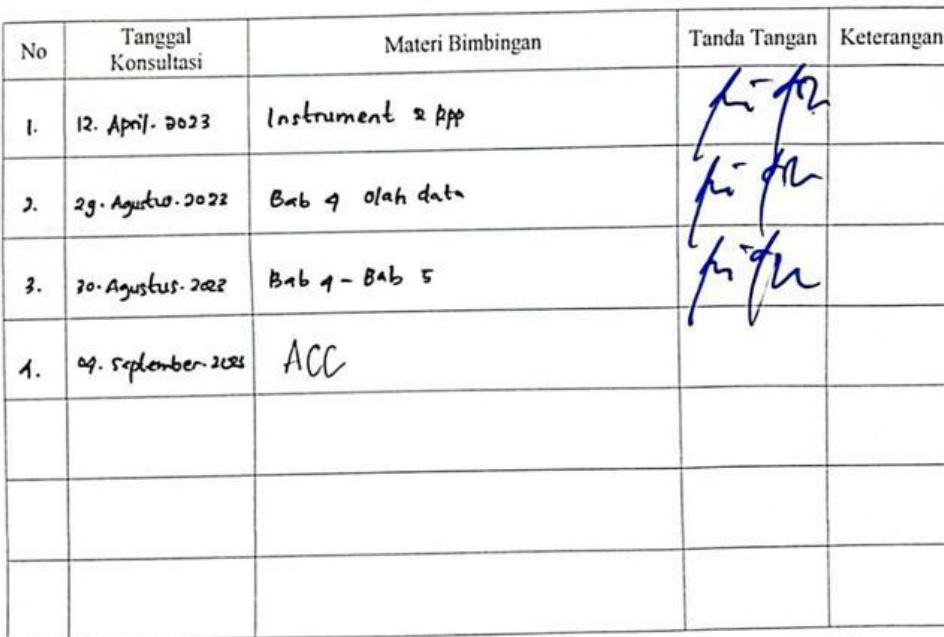 No Tanggal Konsultasi Materi Bimbingan Tanda Tangan Keterangan
1. 12. April. 2023 Instrument & RPP
2. 29. Agustus. 2023 Bab 4 olah data
3. 30. Agustus. 2023 Bab 4 - Bab 5
4. 04. September. 2023 ACC